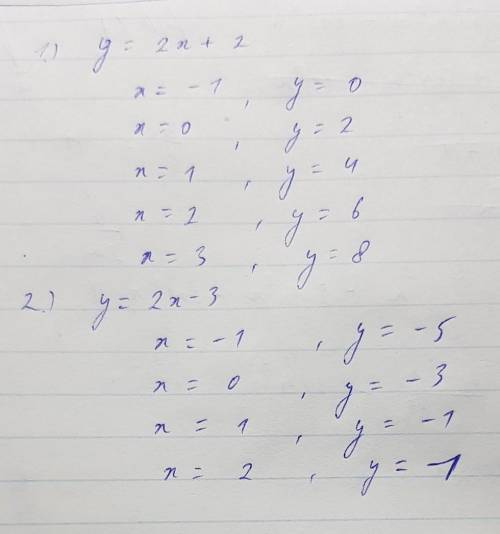 1.) y = 2x + 2
x = -1 , y = 0
x = 0 , y = 2
x = 1 , y = 4
x = 2 , y = 6
x = 3 , y = 8
2.) y = 2x - 3
x = -1 , y = -5
x = 0 , y = -3
x = 1 , y = -1
x = 2 , y = -1